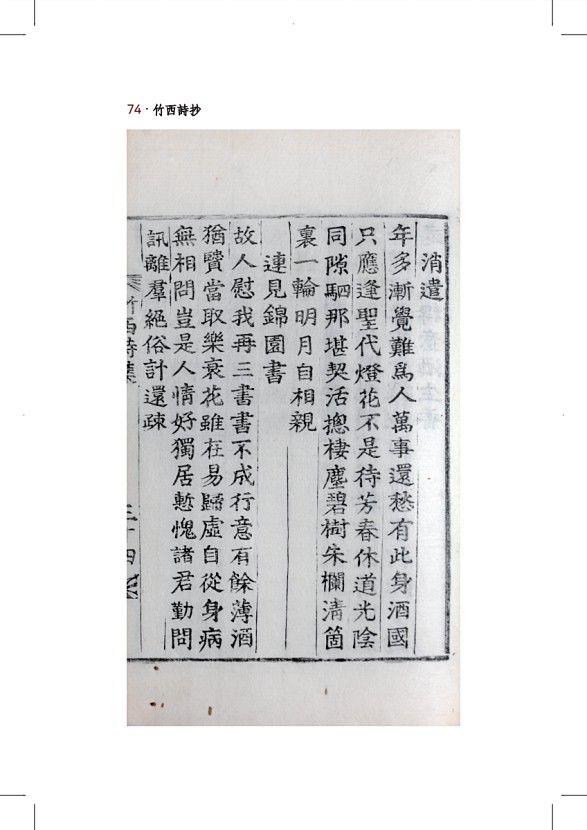 74 · 竹西詩抄
消遣
年多漸覺難爲人萬事還愁有此身酒國
只應逢聖代燈花不是待芳春休道光陰
同隙駟那堪契活摠棲塵碧樹朱欄淸箇
裏一輪明月自相親
連見錦園書
故人慰我再三書書不成行意有餘薄酒
猶賢當取樂衰花雖在易歸虛自從身病
無相問豈是人情好獨居慙愧諸君勤問
訊離羣絕俗計還疎
竹西詩集
三十四